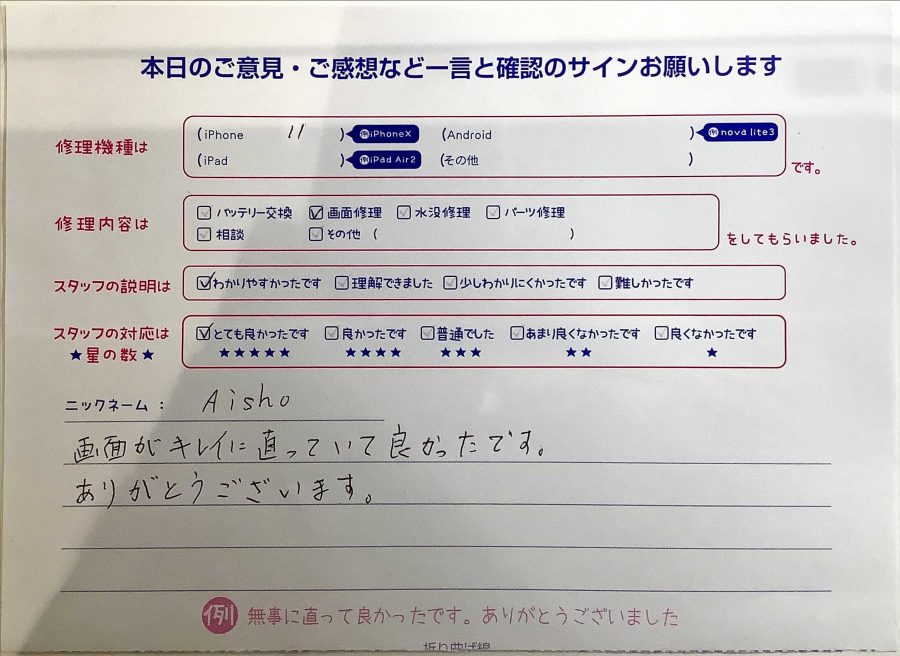 本日のご意見・ご感想など一言と確認のサインお願いします
修理機種は (iPhone 11 ) 例iPhoneX (Android ) 例nova lite3
(iPad ) 例iPad Air2 (その他 ) です。
修理内容は バッテリー交換 画面修理 水没修理 パーツ修理
相談 その他 ( ) をしてもらいました。
スタッフの説明は わかりやすかったです 理解できました 少しわかりにくかったです 難しかったです
スタッフの対応は とても良かったです 良かったです 普通でした あまり良くなかったです 良くなかったです
★星の数★ ★★★★★ ★★★★ ★★★ ★★ ★
ニックネーム： Aisho
画面がキレイに直っていて良かったです。
ありがとうございます。
例 無事に直って良かったです。ありがとうございました
折り曲げ線